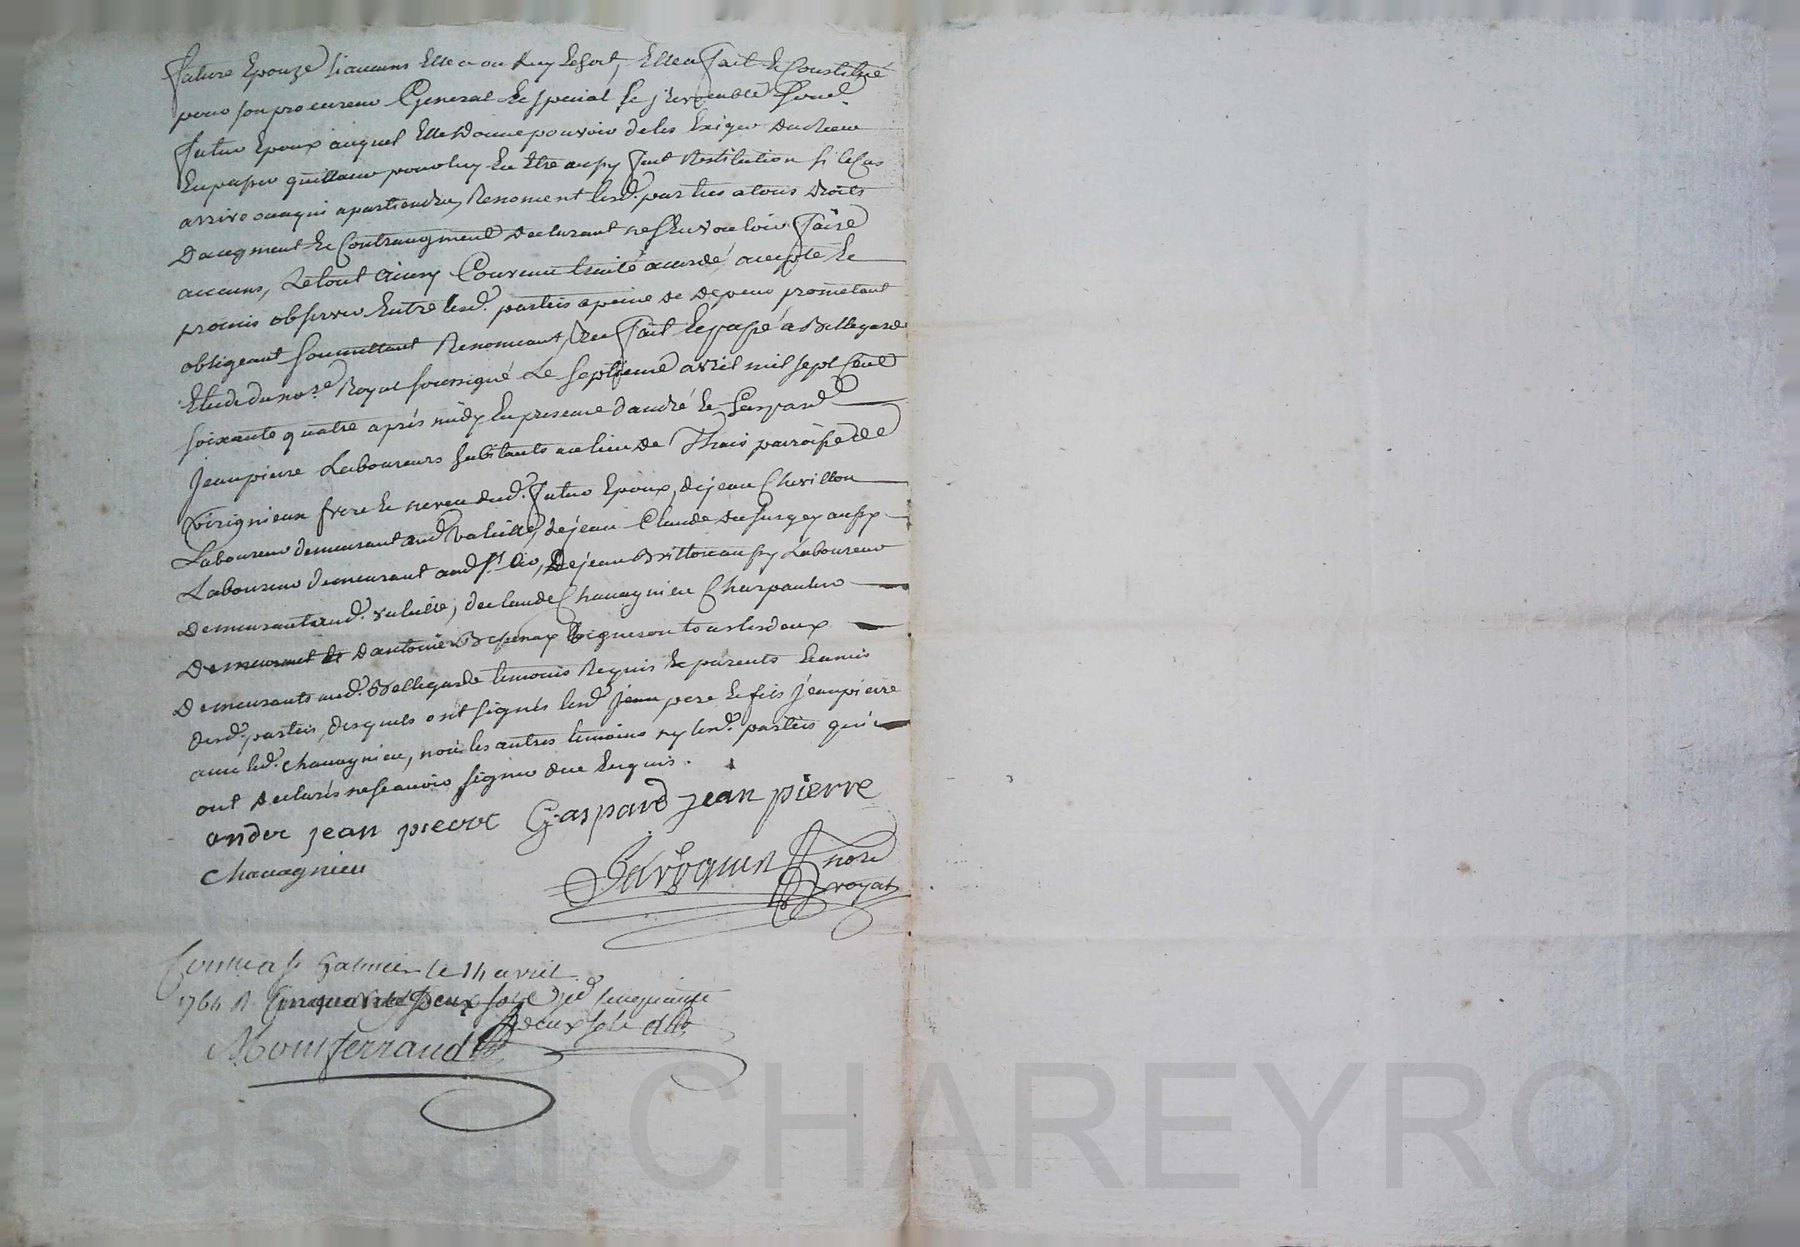 future Epouze si aucuns Elle a ou luy Echoit, Elle a fait Et Constitué
pour son procureur General Et special Et jrrevocable Ched.
futur Epoux auquel Elle donne pouvoir de les Exiger
En passer quittance pour luy En Etre aussy fait Restitution si le Cas
arrive ou a qui apartiendra, Renoncent lesd. parties a tous droits
D'augment Et Contraugment declarant ne s'En vouloir faire
aucuns, Le tout ainsy Convenu traité acordé accepté Et
promis observer Entre lesd. parties a peine de depens promettant
obligeant soumettant Renonceant, &ca fait Et passé a Bellegarde
Etude du no.re Royal soussigné Le septieme avril mil sept Cent
soixante quatre après midy En presence d'andré Et Gaspard
Jeanpierre Laboureurs habitants au lieu de Thais parroisse de
Virignieux frere Et neveu dud. futur Epoux, de jean Chevillon
Laboureur demeurant aud. valeille, de jean Claude aussy
Laboureur demeurant aud. st Cir, De jean Britton aussy Laboureur
Demeurant aud. valeille, de Claude Chavagnieu Charpantier
Demeurant d'antoine Vigneron tous les deux
Demeurants aud. Bellegarde temoins Requis Et parents Et amis
desd. parties, desquels ont signés lesd. Jean pere Et fils Jeanpierre
avec led. Chavagnieu, non les autres temoins ny lesd. parties qui
ont declarés ne scavoir signer de ce Enquis.
ander jean pierre Gaspard jean pierre
Chavagnieu
nore
royal
a st Galmier le 14 avril
1764 R Cinquante Deux sols cinquante
deux sols
Montferrand
Pascal CHAREYRON